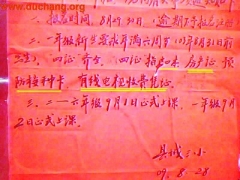 www.duchang.org
一、报名时间 8月30日 逾期
一年级新生要求年满六周岁(8月31日前
四证齐全 四证指户口本 房产证 预
防接种卡 有线电视收费凭证.
二、二—六年级9月1日正式上课. 一年级9月
2日正式上课
县城三小
09.8.28